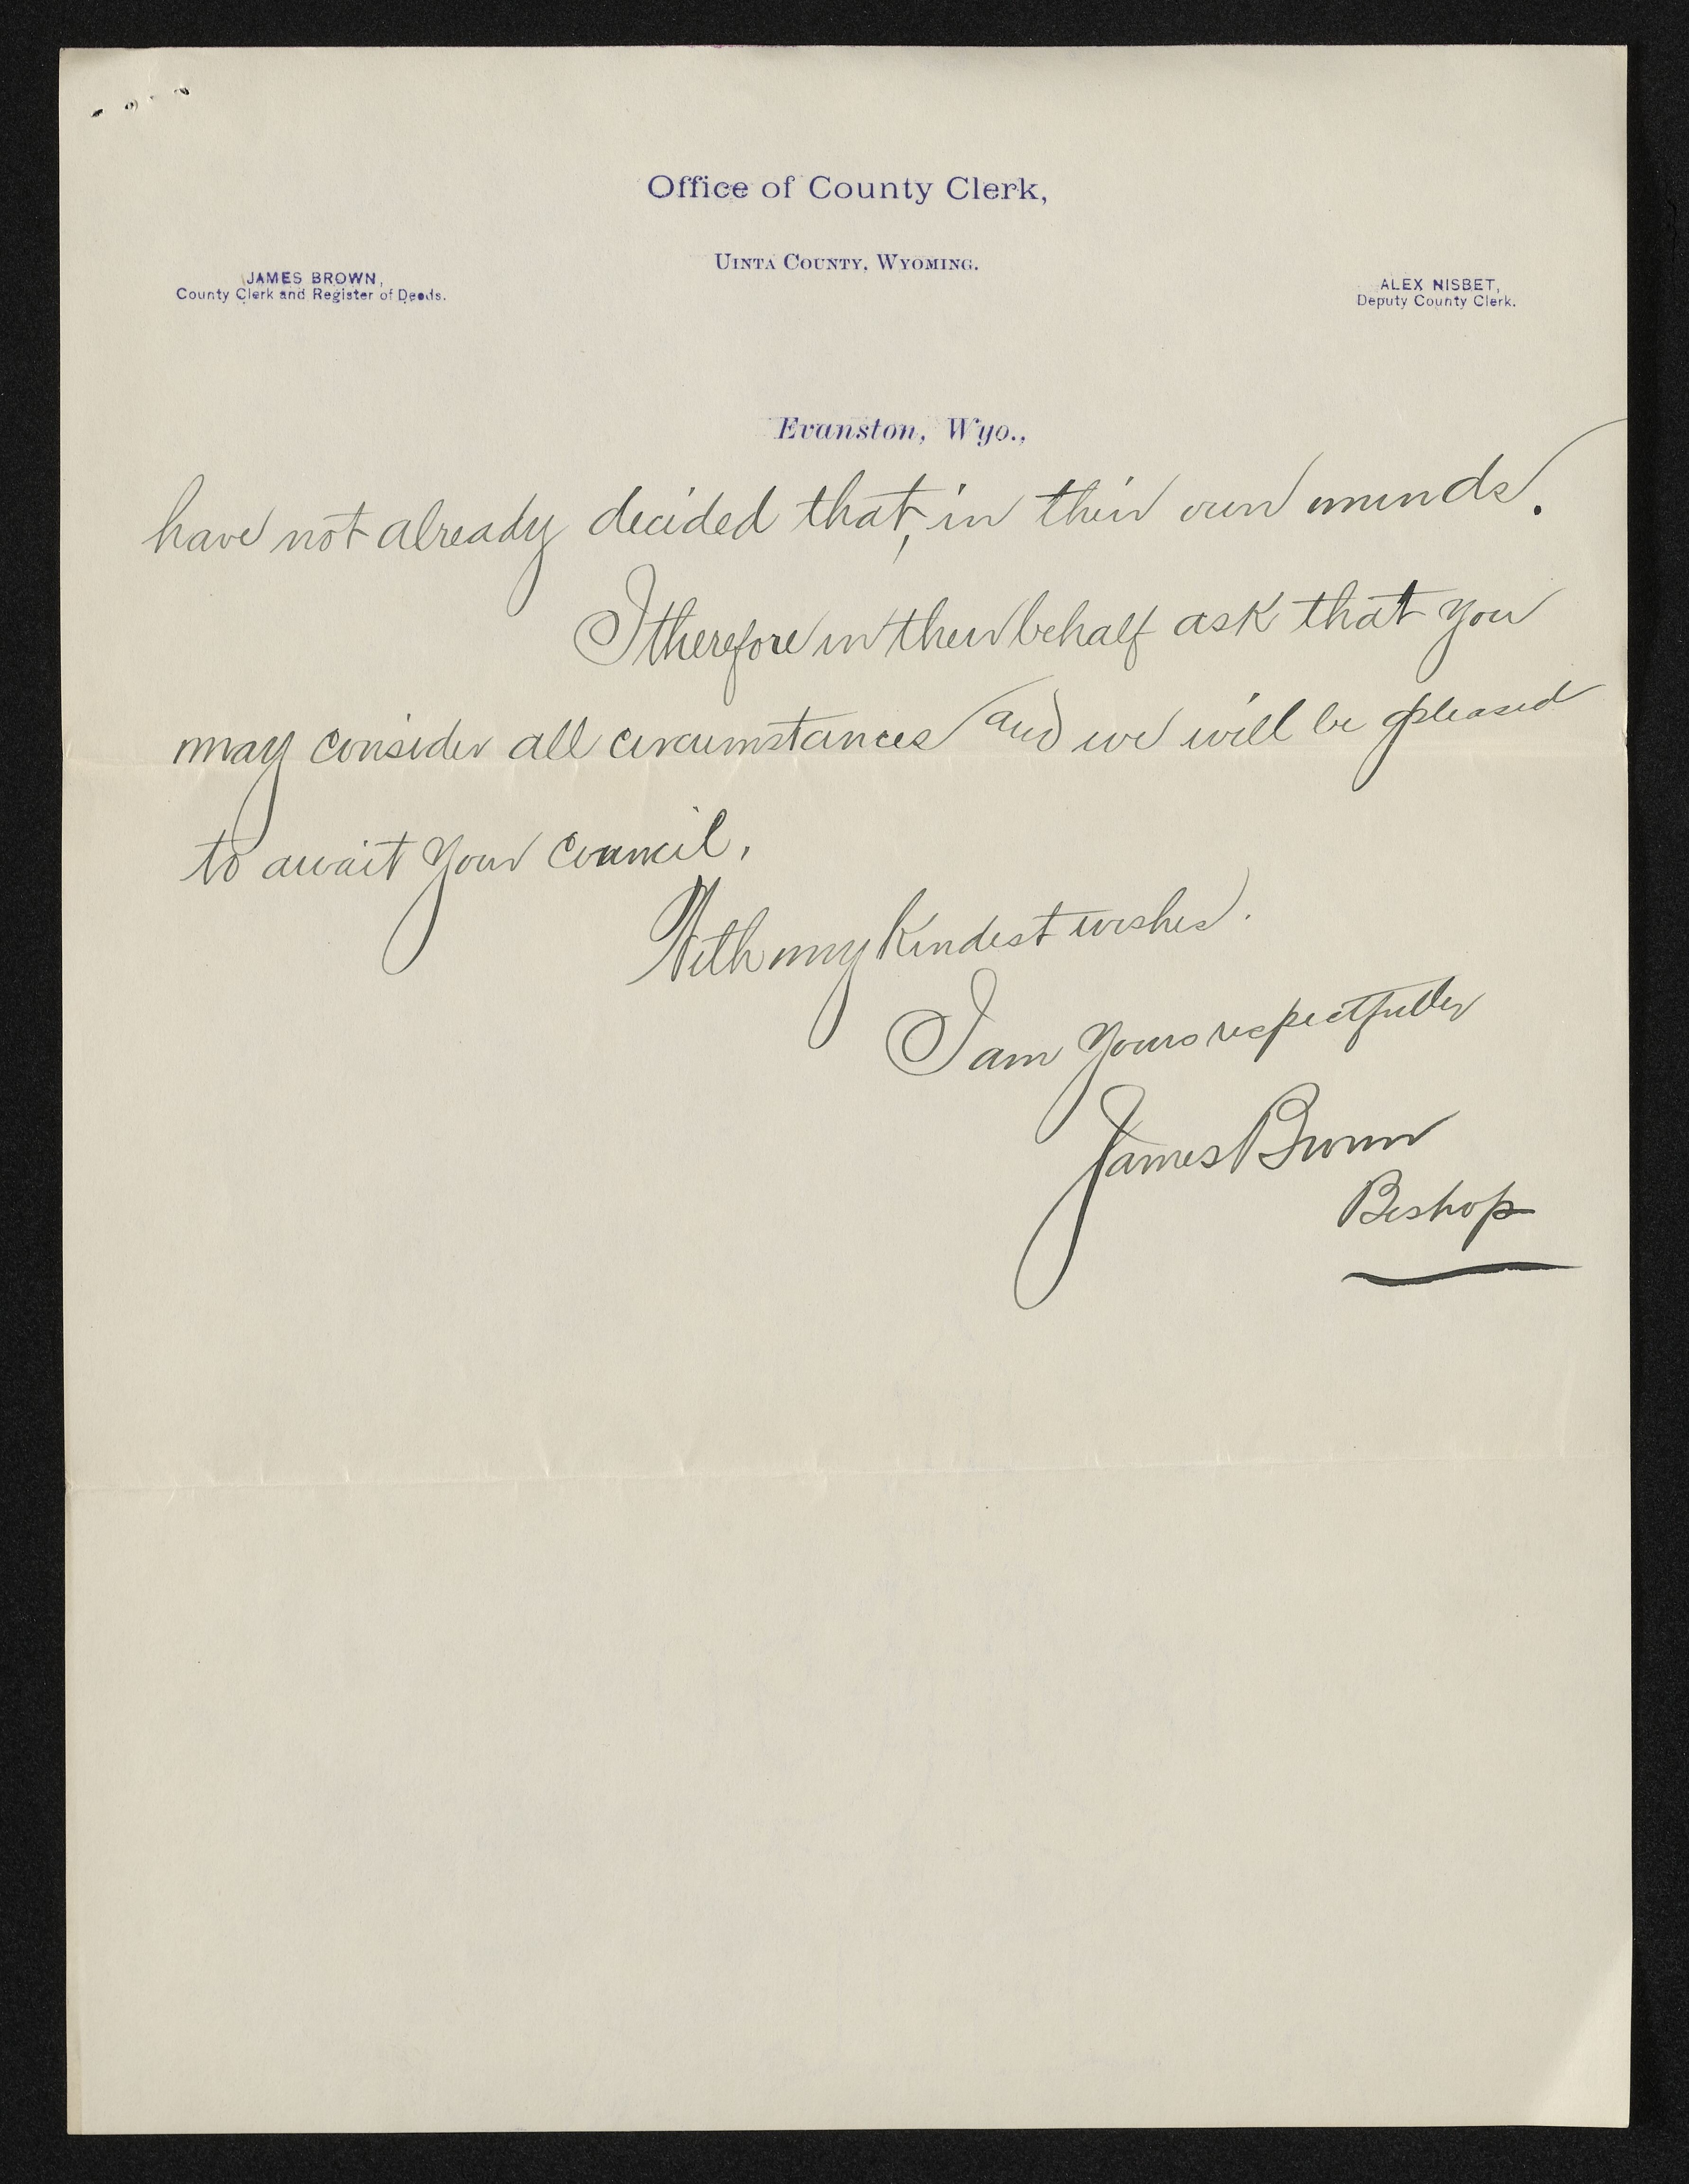 Office of County Clerk,
Uinta County, Wyoming.
JAMES BROWN,
County Clerk and Register of Deeds.
ALEX NISBET,
Deputy County Clerk.
Evanston, Wyo.,
have not already decided that, in their own minds.
I therefore in their behalf ask that you
may consider all circumstances and we will be pleased
to await your council,
With my kindest wishes.
I am yours respectfully
James Brown
Bishop